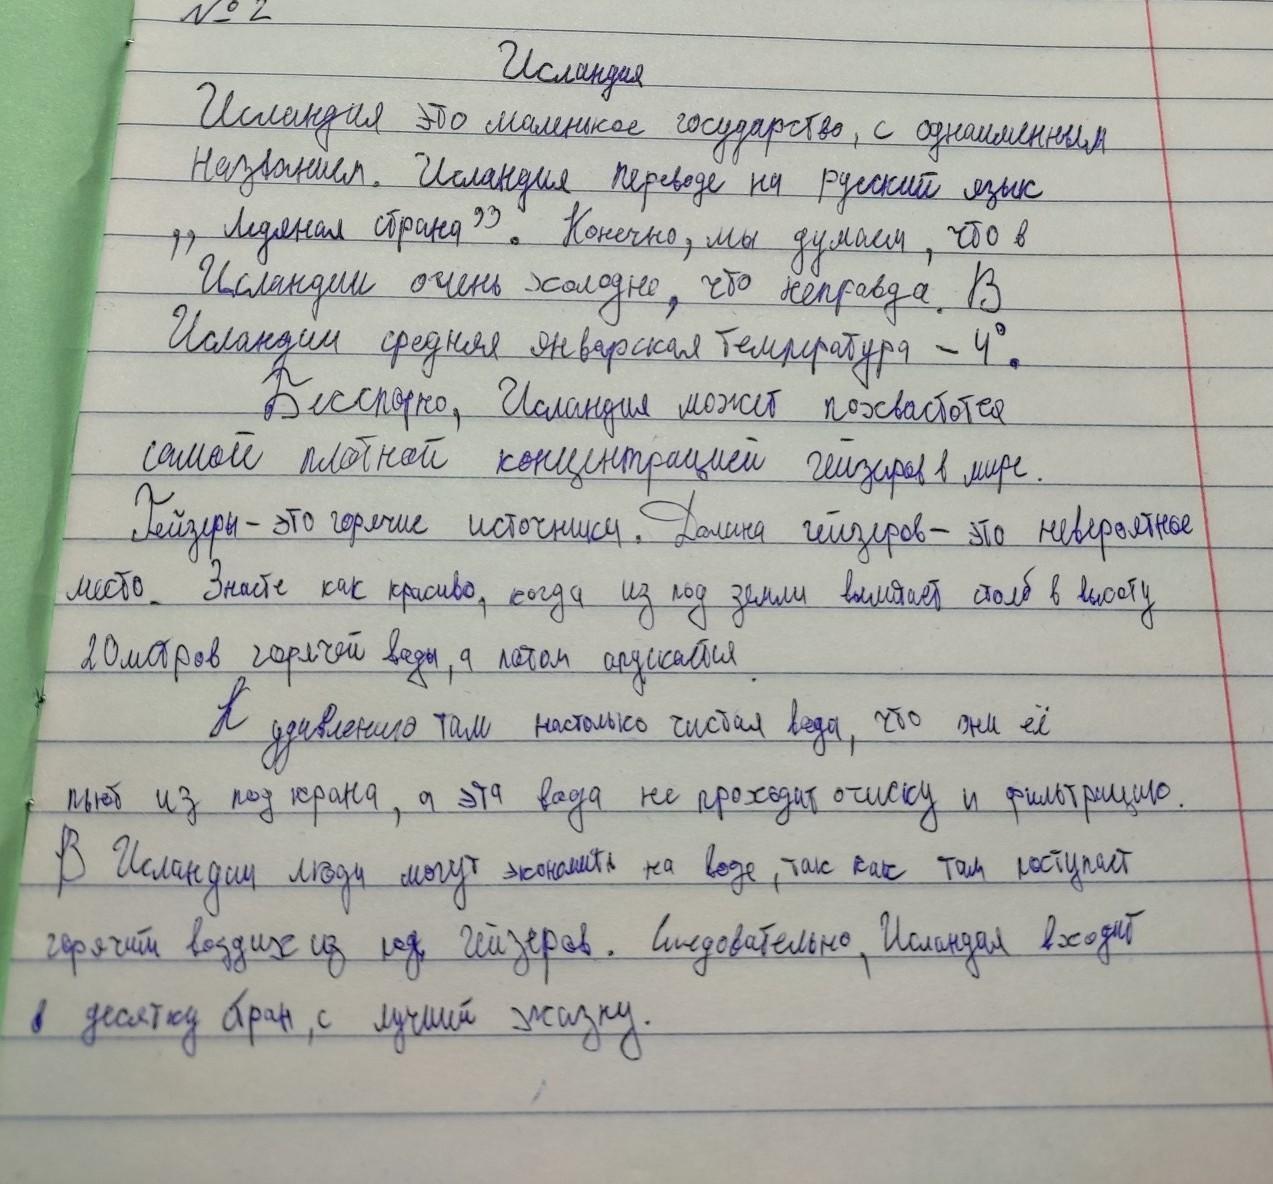 № 2
Исландия
Исландия это маленькое государство, с одноименным
названием. Исландия переводе на русский язык
,, Ледяная страна”. Конечно, мы думаем, что в
Исландии очень холодно, что неправда. В
Исландии средняя январская температура – 4°.
Бесспорно, Исландия может похвастотся
самой плотной концентрацией гейзеров в мире.
Гейзеры – это горячие источники. Долина гейзеров – это невероятное
место. Знаете как красиво, когда из под земли вылитает столб в высоту
20 метров горячей воды, а потом опускается.
К удивлению там настолько чистая вода, что они её
пьют из под крана, а эта вода не проходит очиску и фильтрацию.
В Исландии люди могут экономить на воде, так как там поступает
горячий воздих из под гейзеров. Следовательно, Исландия входит
в десятку стран, с лучший жизну.